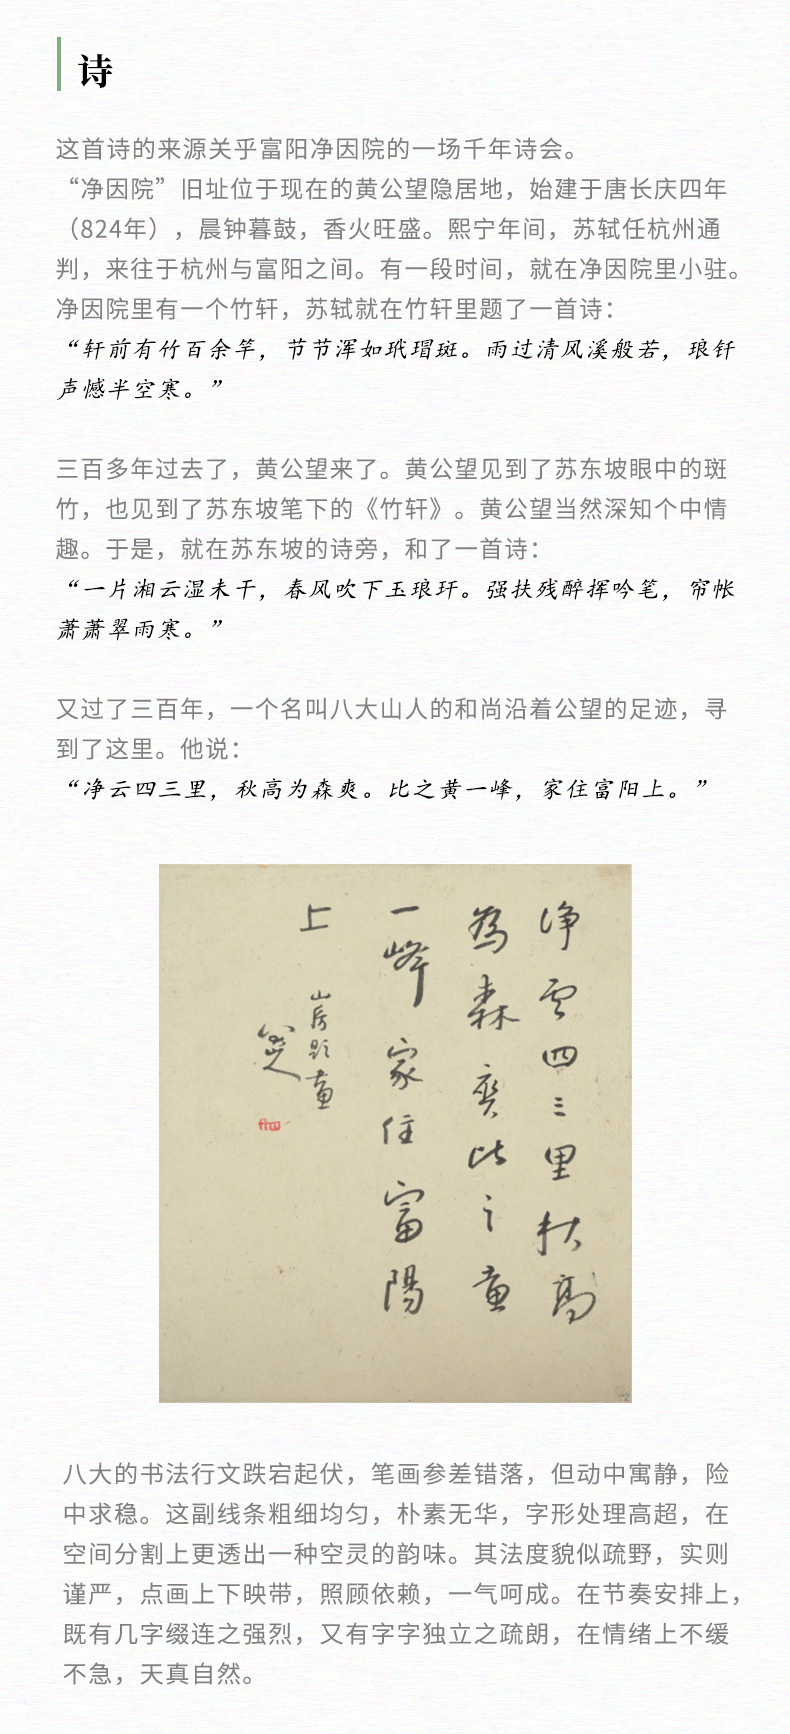 诗
这首诗的来源关乎富阳净因院的一场千年诗会。
“净因院”旧址位于现在的黄公望隐居地，始建于唐长庆四年
（824年），晨钟暮鼓，香火旺盛。熙宁年间，苏轼任杭州通
判，来往于杭州与富阳之间。有一段时间，就在净因院里小驻。
净因院里有一个竹轩，苏轼就在竹轩里题了一首诗：
“轩前有竹百余竿，节节浑如玳瑁斑。雨过清风溪般若，琅钎
声憾半空寒。”
三百多年过去了，黄公望来了。黄公望见到了苏东坡眼中的斑
竹，也见到了苏东坡笔下的《竹轩》。黄公望当然深知个中情
趣。于是，就在苏东坡的诗旁，和了一首诗：
“一片湘云湿未干，春风吹下玉琅玕。强扶残醉挥吟笔，帘帐
萧萧翠雨寒。”
又过了三百年，一个名叫八大山人的和尚沿着公望的足迹，寻
到了这里。他说：
“净云四三里，秋高为森爽。比之黄一峰，家住富阳上。”
净云四三里秋高
為森爽比之黄
一峰家住富陽
上
山房题画
八大的书法行文跌宕起伏，笔画参差错落，但动中寓静，险
中求稳。这副线条粗细均匀，朴素无华，字形处理高超，在
空间分割上更透出一种空灵的韵味。其法度貌似疏野，实则
谨严，点画上下映带，照顾依赖，一气呵成。在节奏安排上，
既有几字缀连之强烈，又有字字独立之疏朗，在情绪上不缓
不急，天真自然。